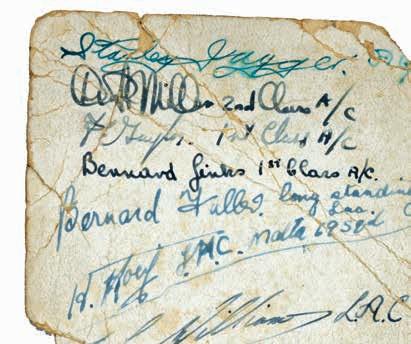 Stanley Jagger.
Miller 2nd Class A/C
F 1st Class A/C
Bernard Jinks 1st Class A/C.
Bernard Fuller. long standing
Lac.
H. Hoey J.A.C. Malta 1952
Williams L.A.C